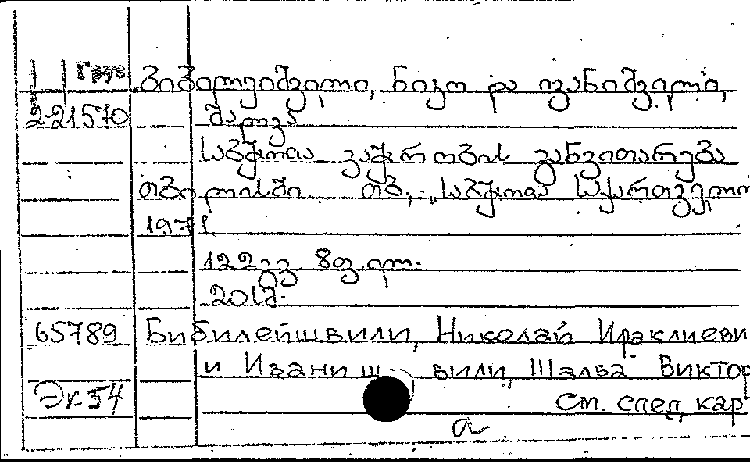 ბიბილეიშვილი, ნიკო და ივანიშვილი,
2-21570 შალვა
საბჭოთა ვაჭრობის განვითარება
თბილისში თბ., „საბჭოთა საქართველო
1971.
122 გვ 8ფ.ილ.
65789 Бибилейшвили, Николай Ираклиеви
и Иванишвили, Шалва Виктор
Эк 54 См. след. кар
a